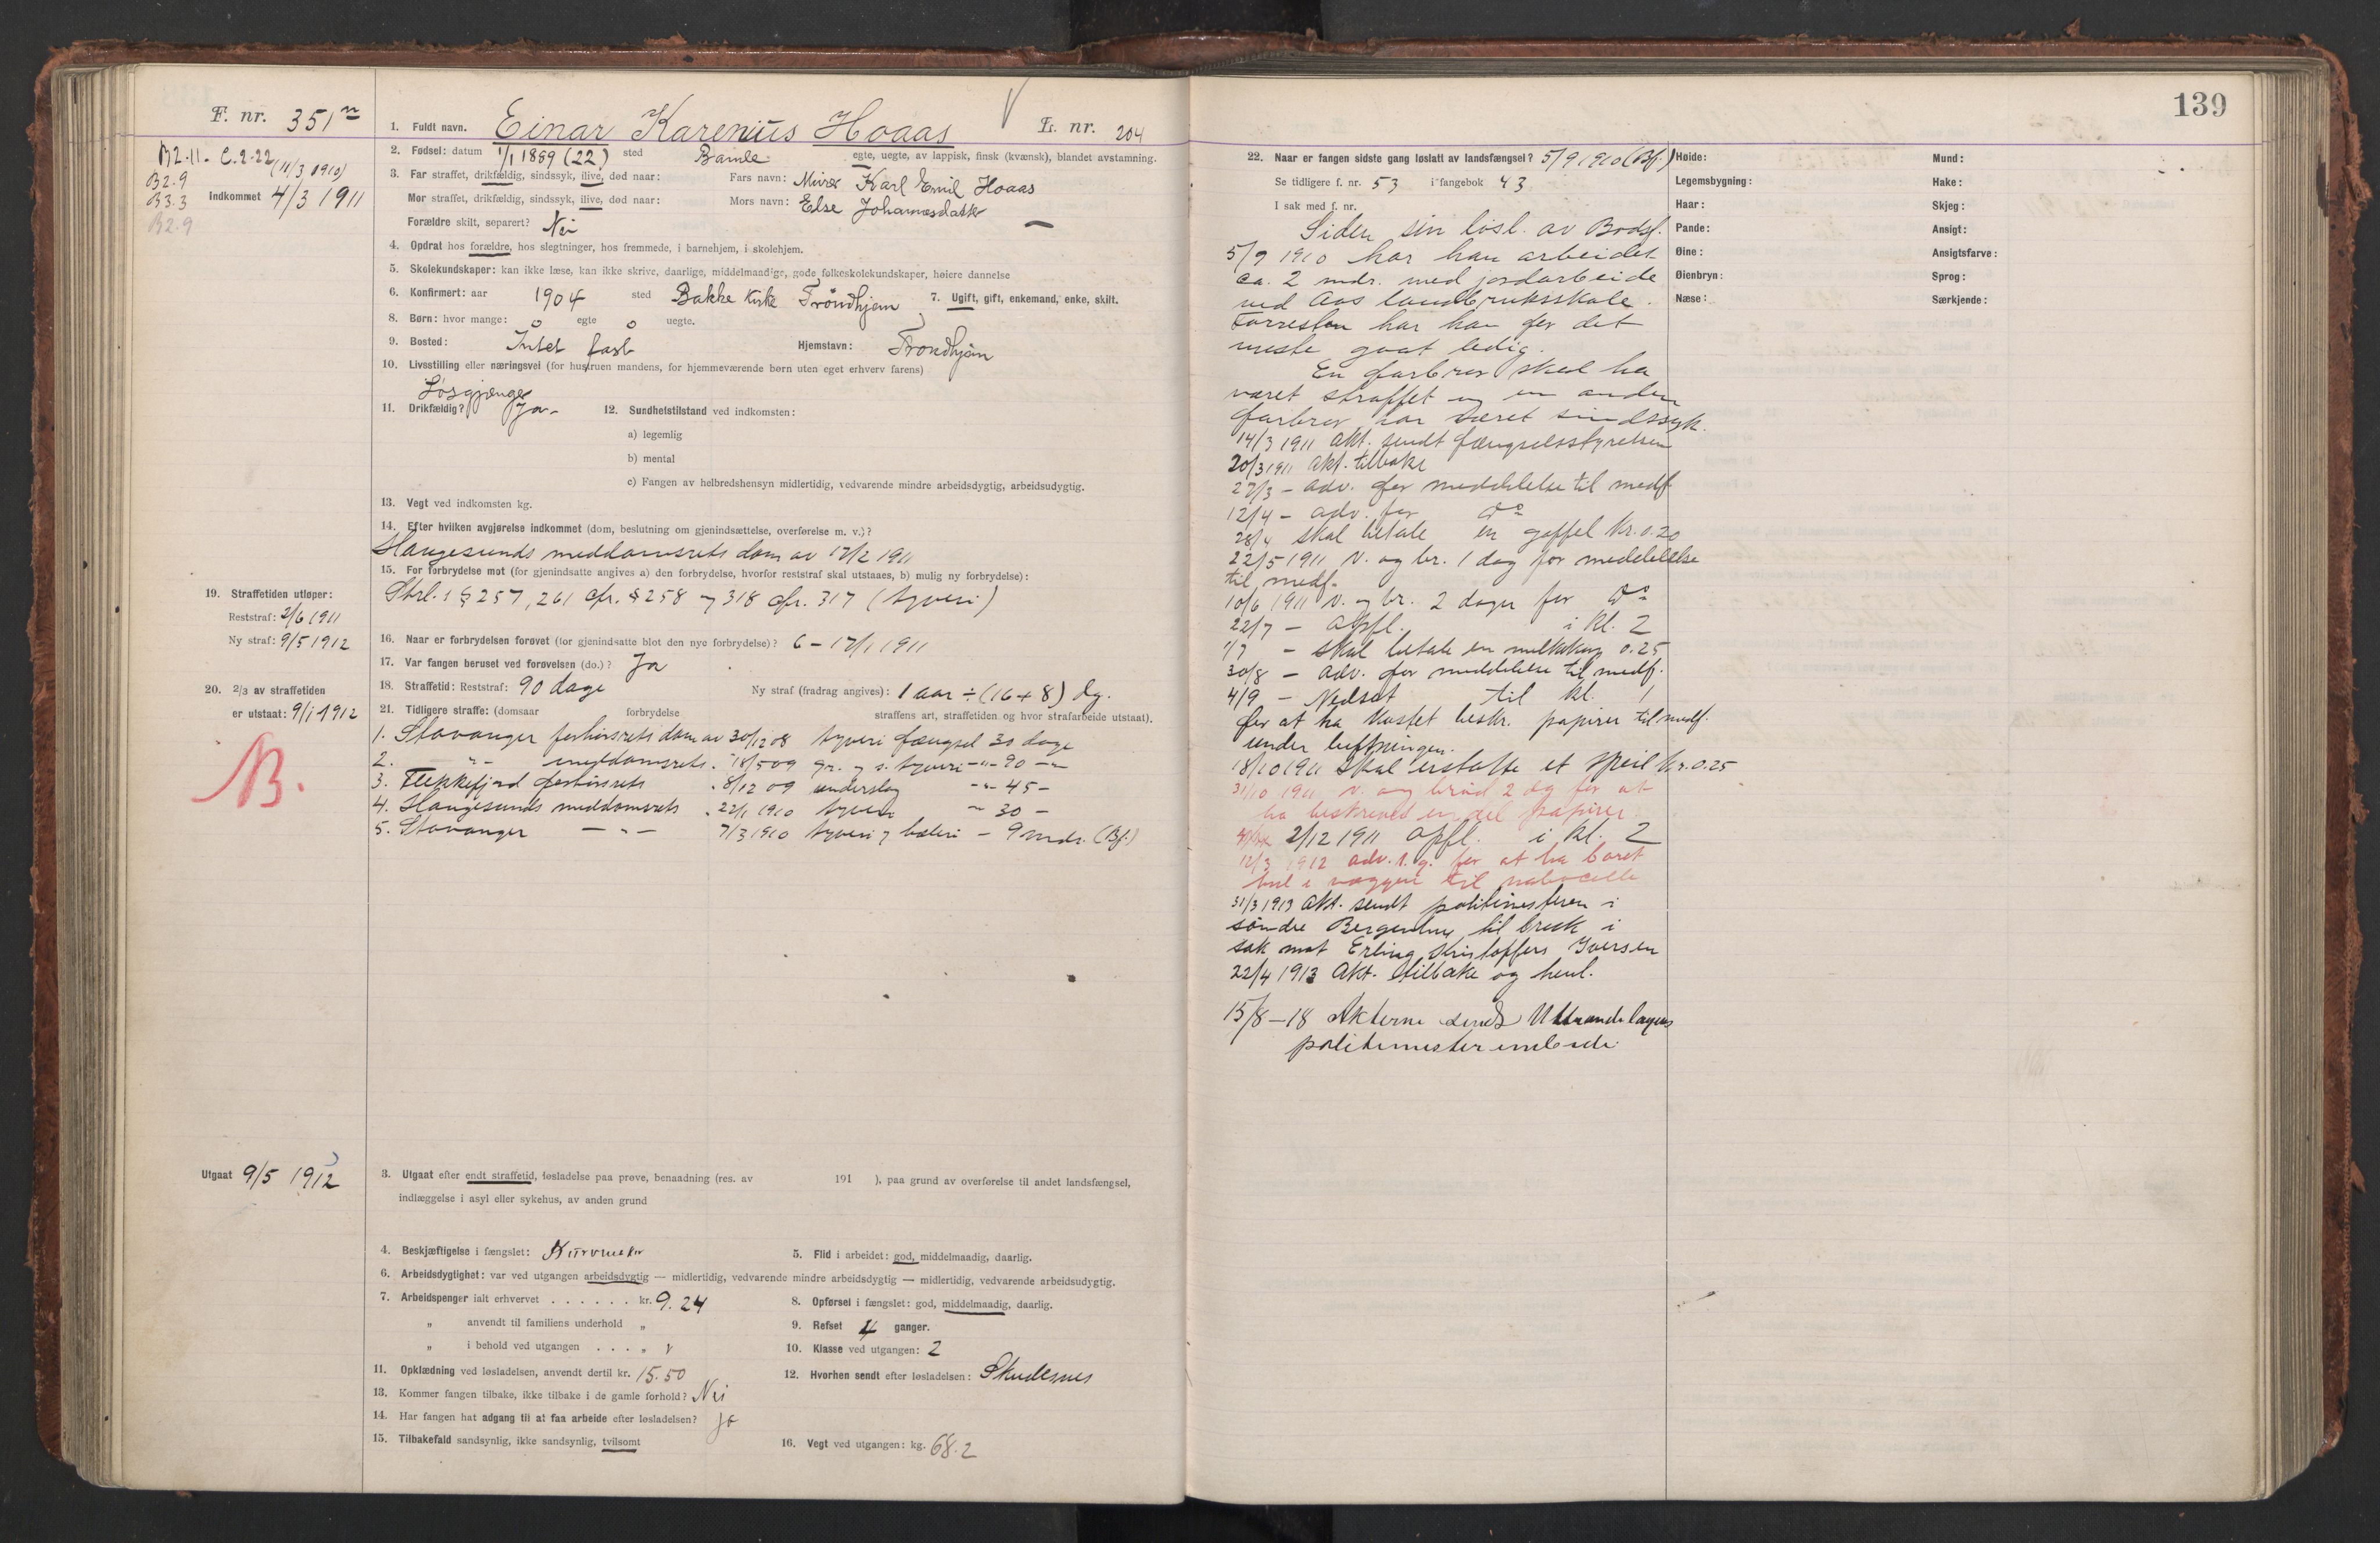 139
F. nr. 351
1. Fuldt navn. Einar Karenius Hoaas L. nr. 204
B2.11. C.2.22 (11/3 1910)
B2.9
B3.3
B2.9
Indkommet 4/3 1911
2. Fødsel: datum 1/1 1889 (22) sted Bamle egte, uegte, av lappisk, finsk (kvænsk), blandet avstamning.
3. Far straffet, drikfældig, sindssyk, ilive, død naar: Fars navn: Murer Karl Emil Hoaas
Mor straffet, drikfældig, sindssyk, ilive, død naar: Mors navn: Else Johannesdatter
Forældre skilt, separert? Nei
4. Opdrat hos forældre, hos slegtninger, hos fremmede, i barnehjem, i skolehjem.
5. Skolekundskaper: kan ikke læse, kan ikke skrive, daarlige, middelmaadige, gode folkeskolekundskaper, høiere dannelse
6. Konfirmert: aar 1904 sted Bakke Kirke Trondhjem 7. Ugift, gift, enkemand, enke, skilt.
8. Børn: hvor mange: 0 egte 0 uegte.
9. Bosted: Intet fast Hjemstavn: Trondhjem
10. Livsstilling eller næringsvei (for hustruen mandens, for hjemmeværende børn uten eget erhverv farens)
Løsgjænger
11. Drikfældig? Ja 12. Sundhetstilstand ved indkomsten:
a) legemlig
b) mental
c) Fangen av helbredshensyn midlertidig, vedvarende mindre arbeidsdygtig, arbeidsudygtig.
13. Vegt ved indkomsten kg.
14. Efter hvilken avgjørelse indkommet (dom, beslutning om gjenindsættelse, overførelse m. v.)?
Haugesunds meddomsrets dom av 17/2 1911
15. For forbrydelse mot (for gjenindsatte angives a) den forbrydelse, hvorfor reststraf skal utstaaes, b) mulig ny forbrydelse):
Strl. s § 257, 261 cfr. § 258 og 318 cfr. 317 (tyveri)
19. Straffetiden utløper:
Reststraf: 2/6 1911
Ny straf: 9/5 1912
16. Naar er forbrydelsen forøvet (for gjenindsatte blot den nye forbrydelse)? 6 - 17/1 1911
17. Var fangen beruset ved forøvelsen (do.)? Ja
18. Straffetid: Reststraf: 90 dage Ny straf (fradrag angives): 1 aar ÷ (16 + 8) dg.
20. 2/3 av straffetiden
er utstaat: 9/1 1912
21. Tidligere straffe: (domsaar forbrydelse straffens art, straffetiden og hvor strafarbeide utstaat).
1. Stavanger forhørsrets dom av 30/12 08 tyveri fængsel 30 dage
2. -"- meddomsrets - 18/5 09 gr. og s. tyveri -"- 90 -"-
3. Flekkefjord forhørsrets - 8/12 09 underslag -"- 45 -
4. Haugesunds meddomsrets - 22/1 1910 tyveri -"- 30 -
5. Stavanger -"- 7/3 1910 tyveri og hæleri - 9 mdr. (Bf.)
B.
Utgaat 9/5 1912
3. Utgaat efter endt straffetid, løsladelse paa prøve, benaadning (res. av 191 ), paa grund av overførelse til andet landsfængsel,
indlæggelse i asyl eller sykehus, av anden grund
4. Beskjæftigelse i fængslet: Kurvmaker 5. Flid i arbeidet: god, middelmaadig, daarlig.
6. Arbeidsdygtighet: var ved utgangen arbeidsdygtig — midlertidig, vedvarende mindre arbeidsdygtig — midlertidig, vedvarende arbeidsudygtig.
7. Arbeidspenger ialt erhvervet . . . . . . kr. 9.24 8. Opførsel i fængslet: god, middelmaadig, daarlig.
" anvendt til familiens underhold " 9. Refset 4 ganger.
" i behold ved utgangen . . . . " 10. Klasse ved utgangen: 2
11. Opklædning ved løsladelsen, anvendt dertil kr. 15.50 12. Hvorhen sendt efter løsladelsen: Skudesnes
13. Kommer fangen tilbake, ikke tilbake i de gamle forhold? Nei
14. Har fangen hat adgang til at faa arbeide efter løsladelsen? Ja
15. Tilbakefald sandsynlig, ikke sandsynlig, tvilsomt 16. Vegt ved utgangen: kg. 68.2
22. Naar er fangen sidste gang løslatt av landsfængsel? 5/9 1910 (Bf.)
Se tidligere f. nr. 53 i fangebok 43
I sak med f. nr.
Siden sin løsl. av Bodsf.
5/9 1910 har han arbeidet
ca. 2 mdr. med jordarbeide
ved Aas landbruksskole.
Forresten har han for det
meste gaat ledig.
En farbror skal ha
været straffet og en anden
farbror har været sindssyk.
14/3 1911 Akt. sendt fængselsstyrelsen
20/3 1911 Akt. tilbake
27/3 - adv. for meddelelse til medf.
12/4 - adv. for do
28/4 skal betale en gaffel kr. 0.20
22/5 1911 v. og br. 1 dag for meddelelse
til medf.
10/6 1911 v. og br. 2 dager for do
22/7 - Opfl. i kl. 2
1/7 - skal betale en melkekop 0.25
30/8 - adv. for meddelelse til medf.
4/9 - Nedsat til kl. 1
for at ha kastet beskr. papirer til medf.
under luftningen.
18/10 1911 Skal erstatte et speil kr. 0.25
31/10 1911 v. og brød 2 dg for at
ha beskrevet en del papirer.
2/12 1911 Opfl. i kl. 2
12/3 1912 adv. 1. g. for at ha boret
hul i væggen til nabocelle
31/3 1913 Akt. sendt politimesteren i
søndre Bergenhus til bruk i
sak mot Erling Kristoffers Iversen
22/4 1913 Akt. tilbake og henl.
15/8 - 18 Akterne sendt Uttrøndelagens
politimesterembede.
Høide:
Legemsbygning:
Haar:
Pande:
Øine:
Øienbryn:
Næse:
Mund:
Hake:
Skjeg:
Ansigt:
Ansigtsfarve:
Sprog:
Særkjende: